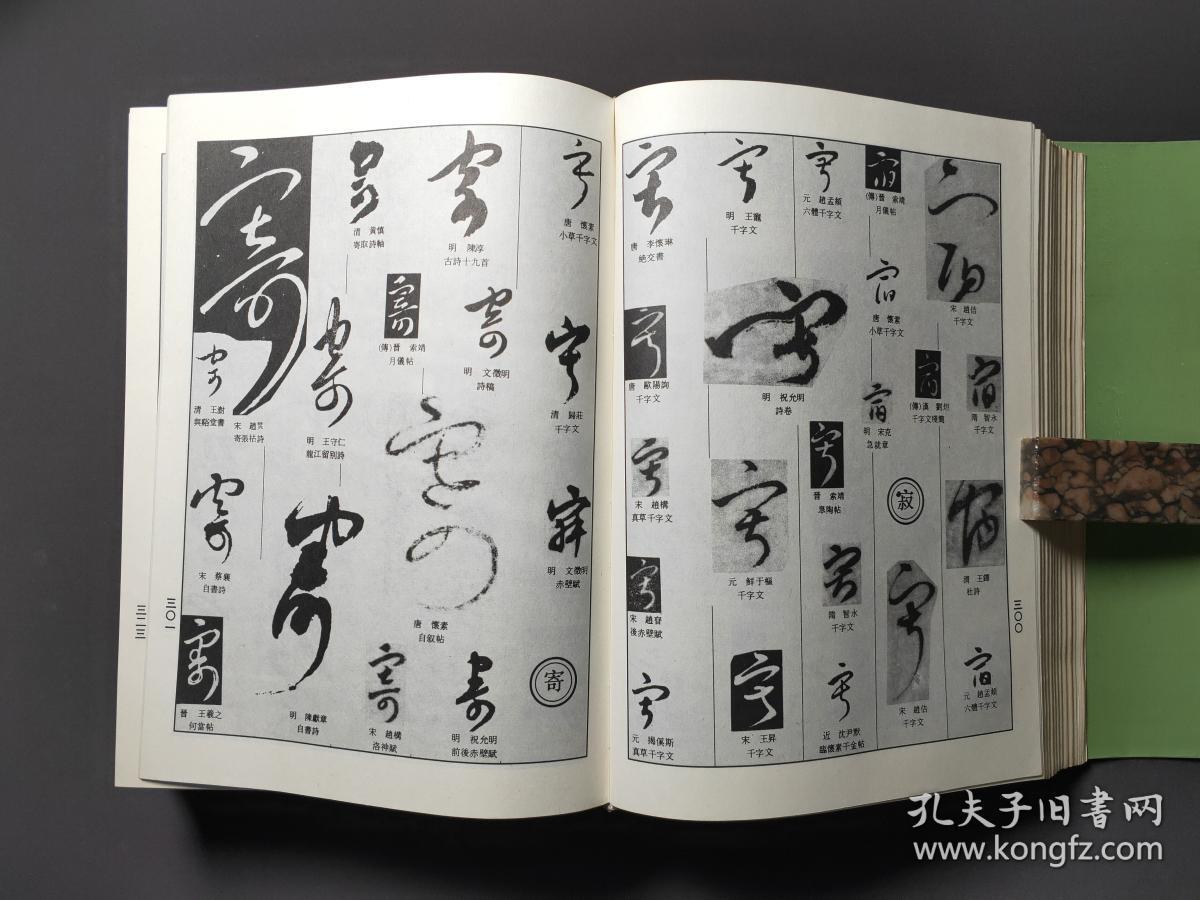 宋 趙佶
千字文
隋 智永
千字文
清 王鐸
杜詩
元 趙孟頫
六體千字文
(傳)晉 索靖
月儀帖
唐 懷素
小草千字文
(傳)漢 劉炟
明 宋克
急就章
寂
宋 趙佶
千字文
元 趙孟頫
六體千字文
明 祝允明
詩卷
晉 索靖
隋 智永
千字文
近 沈尹默
臨懷素千金帖
明 王寵
千字文
元 鮮于樞
千字文
宋 王昇
千字文
唐 李懷琳
絕交書
唐 歐陽詢
千字文
宋 趙構
真草千字文
後赤壁賦
元 揭傒斯
真草千字文
三〇〇
唐 懷素
小草千字文
清 歸莊
千字文
明 文徵明
赤壁賦
寄
明 陳淳
古詩十九首
明 文徵明
詩稿
唐 懷素
自叙帖
明 祝允明
前後赤壁賦
清 黃慎
寄取詩軸
(傳)晉 索靖
月儀帖
明 王守仁
龍江留別詩
宋 趙構
洛神賦
明 陳獻章
自書詩
寄張祜詩
清 王澍
與谿堂書
宋 蔡襄
自書詩
晉 王羲之
何當帖
三〇一
三二三
孔夫子旧书网
www.kongfz.com